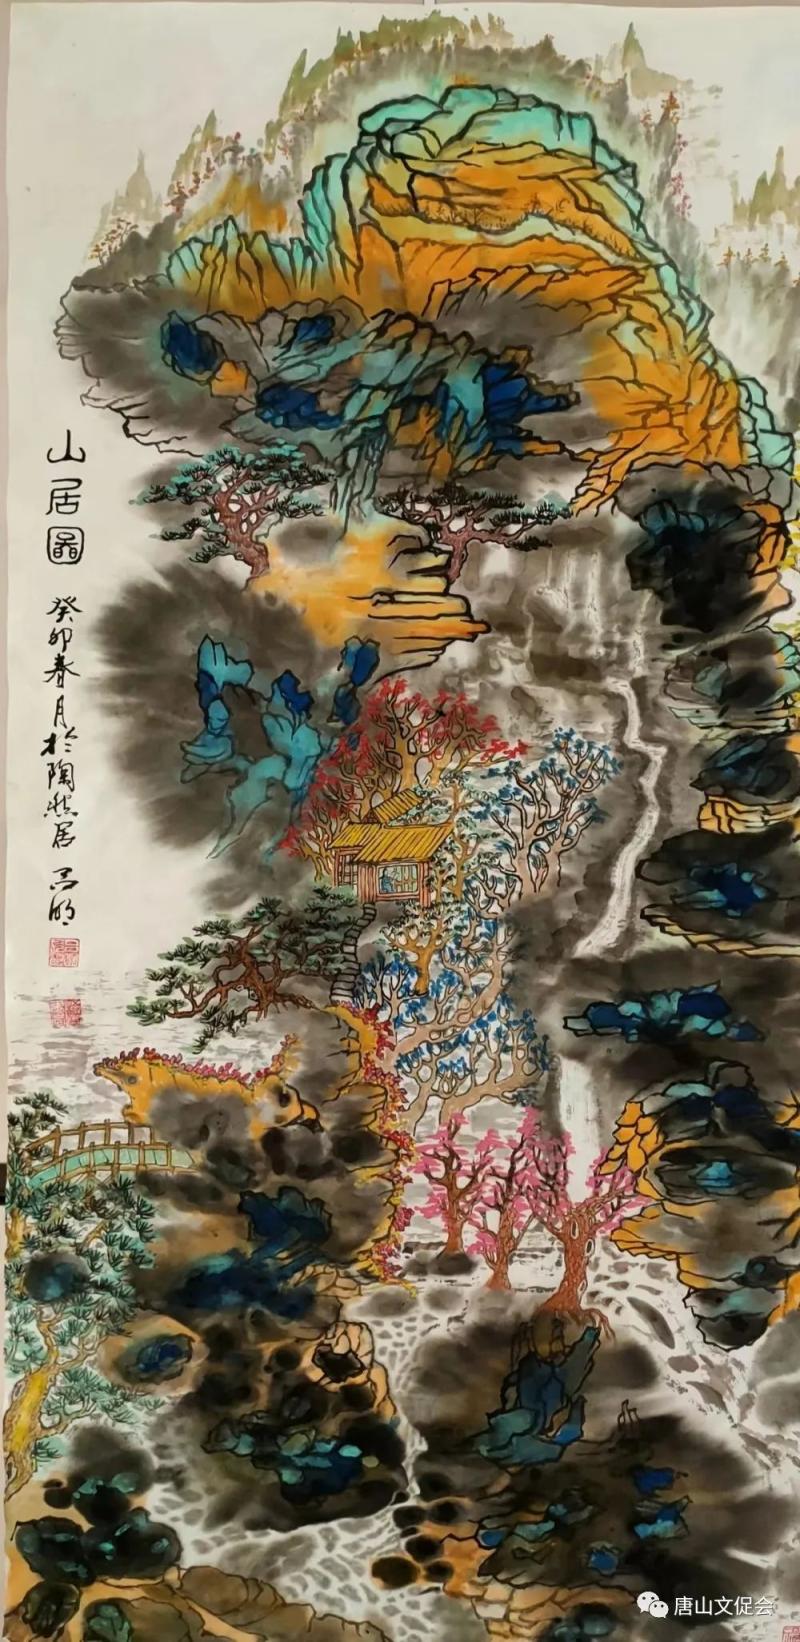 山居圖
癸卯春月於陶然居
唐山文促会